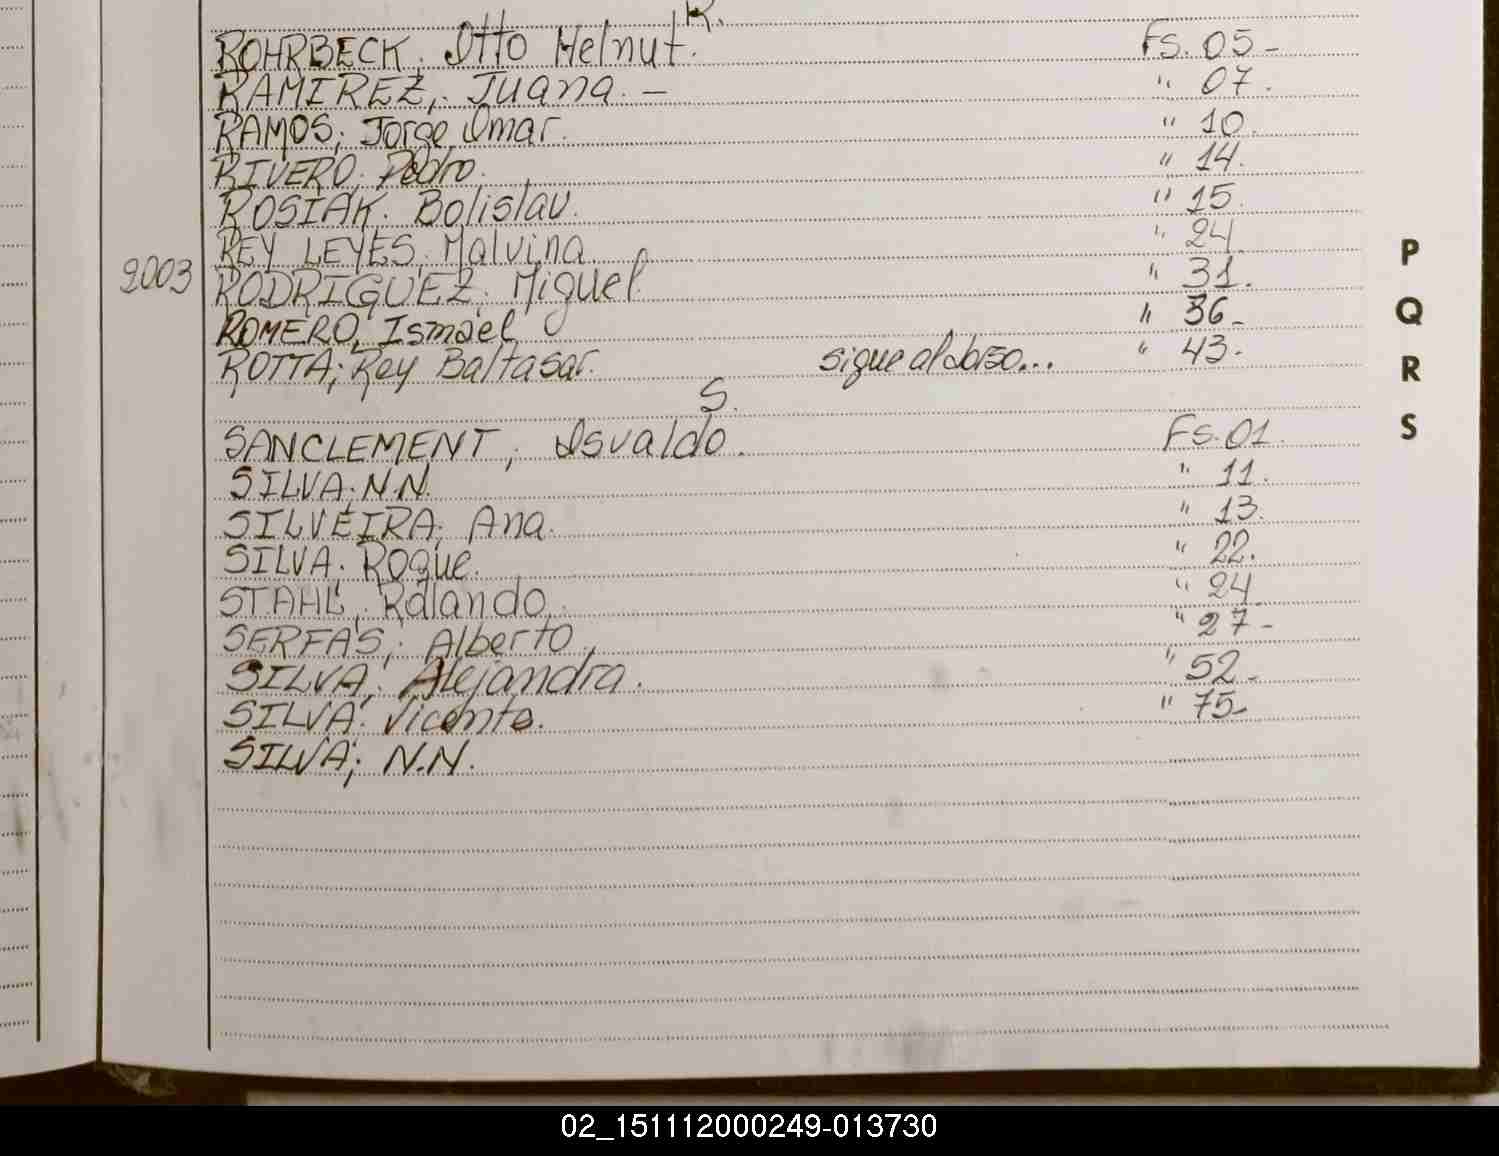 R.
ROHRBECK; Otto Helnut. Fs. 05-
RAMIREZ; Juana. - " 07.
RAMOS; Jorge Omar. " 10.
RIVERO; Pedro. " 14.
ROSIAK; Bolislav. " 15.
REY LEYES; Malvina. " 24.
2003 RODRIGUEZ; Miguel. " 31.
ROMERO; Ismael " 36-
ROTTA; Rey Baltasar. sigue al dorso... " 43-
S.
SANCLEMENT; Osvaldo. Fs. 01.
SILVA; N.N. " 11.
SILVEIRA; Ana. " 13.
SILVA; Roque. " 22.
STAHL; Rolando. " 24
SERFAS; Alberto. " 27-
SILVA; Alejandra. " 52-
SILVA; Vicente. " 75-
SILVA; N.N.
P
Q
R
S
02_151112000249-013730